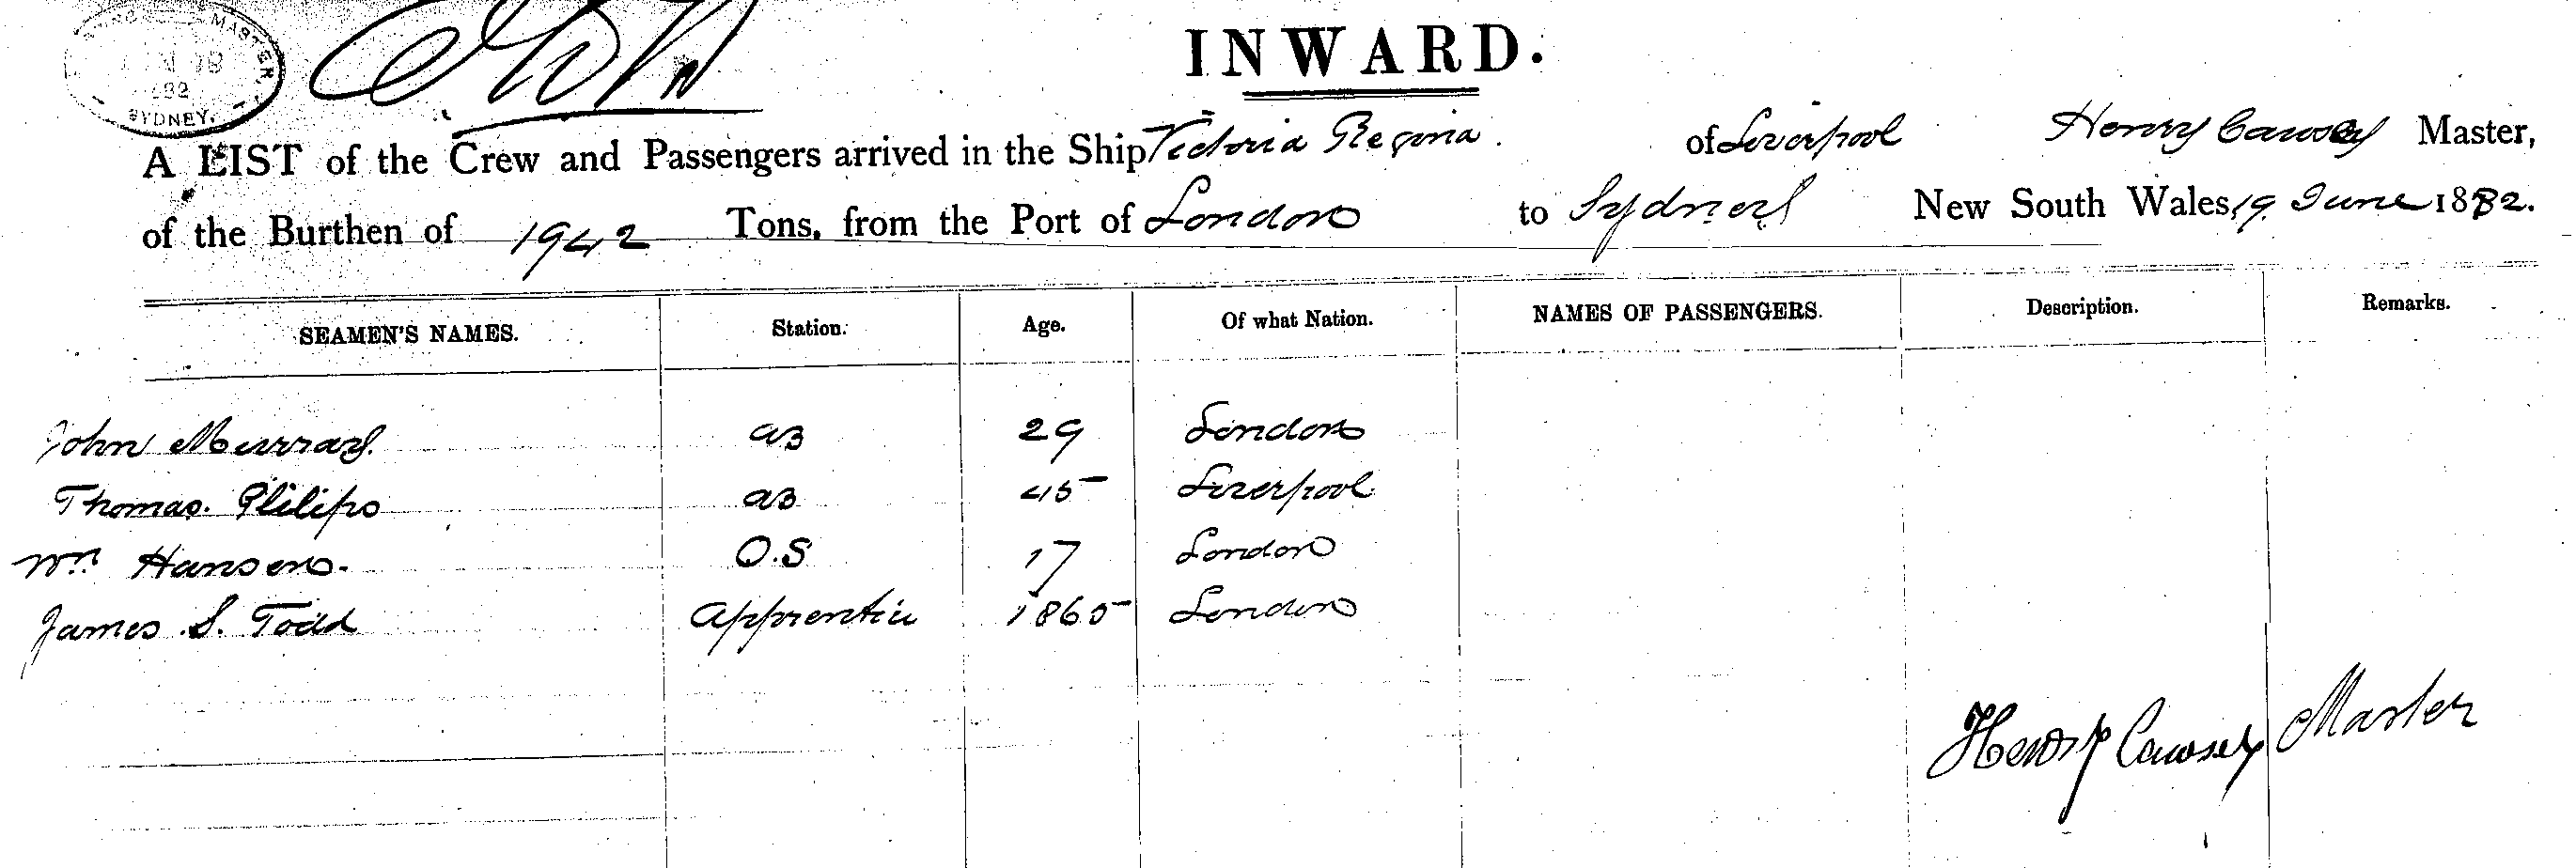 MASTER
SYDNEY.
INWARD.
A LIST of the Crew and Passengers arrived in the Ship Victoria Regina. of Liverpool Henry Cawsey Master,
of the Burthen of 1942 Tons, from the Port of London to Sydney New South Wales, 19 June 1882.
SEAMEN'S NAMES. Station. Age. Of what Nation. NAMES OF PASSENGERS. Description. Remarks.
John Murray. ab 29 London
Thomas. Philips ab 45 Liverpool
Wm. Hansen. O.S 17 London
James S. Todd Apprentice 1865 London
Henry Cawsey Master